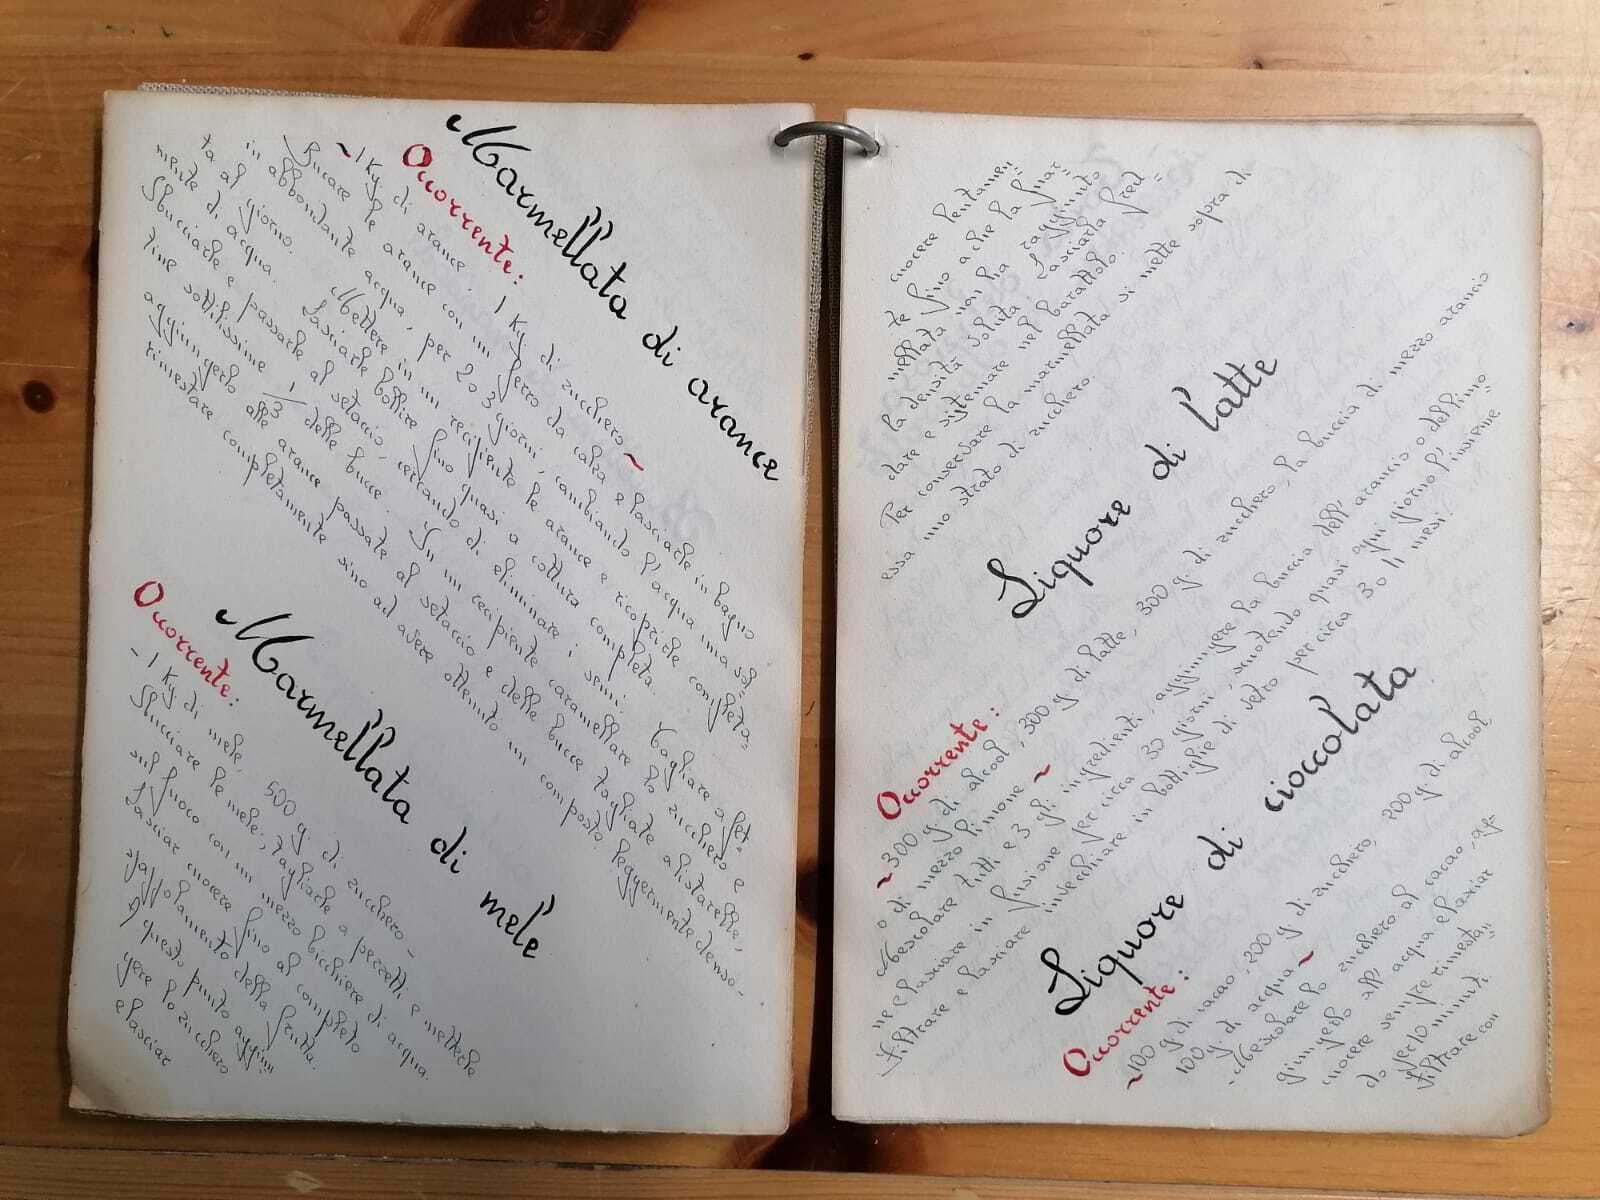 Marmellata di arance
Occorrente:
~ 1 Kg. di arance, 1 Kg di zucchero ~
Bucare le arance con un ferro da calza e lasciarle in bagno
in abbondante acqua, per 2 o 3 giorni, cambiando l'acqua una vol=
ta al giorno. Mettere in un recipiente le arance e ricoprirle completa=
mente di acqua. Lasciarle bollire fino quasi a cottura completa.
Sbucciarle e passarle al setaccio, cercando di eliminare i semi. Tagliare a fet=
tine sottilissime 1/3 delle bucce. In un recipiente caramellare lo zucchero e
aggiungerlo alle arance passate al setaccio e delle bucce tagliate a listarelle,
rimestare completamente sino ad avere ottenuto un composto leggermente denso -
Marmellata di mele
Occorrente:
- 1 Kg di mele, 500 g. di zucchero -
Sbucciare le mele; tagliarle a pezzetti e metterle
sul fuoco con un mezzo bicchiere di acqua.
Lasciar cuocere fino al completo
spappolamento della frutta.
A questo punto aggiun
gere lo zucchero
e lasciar
cuocere lentamen=
te fino a che la mar=
mellata non ha raggiunto
la densità voluta. Lasciarla fred=
dare e sistemare nel barattolo.
Per conservare la marmellata si mette sopra di
essa uno strato di zucchero.
Liquore di latte
Occorrente:
~ 300 g. di alcool, 300 g. di latte, 300 g. di zucchero, la buccia di mezzo arancio
o di mezzo limone ~
Mescolare tutti e 3 gli ingredienti, aggiungere la buccia dell'arancio o del limo=
ne e lasciare in fusione per circa 30 giorni, scuotendo quasi ogni giorno l'insieme
Filtrare e lasciare invecchiare in bottiglie di vetro per circa 3 o 4 mesi.
Liquore di cioccolata
Occorrente:
~ 100 g di cacao, 200 g di zucchero, 200 g di alcool,
100 g. di acqua ~
- Mescolare lo zucchero al cacao, ag=
giungerlo all'acqua e lasciar
cuocere sempre rimestan=
do per 10 minuti.
Filtrare con